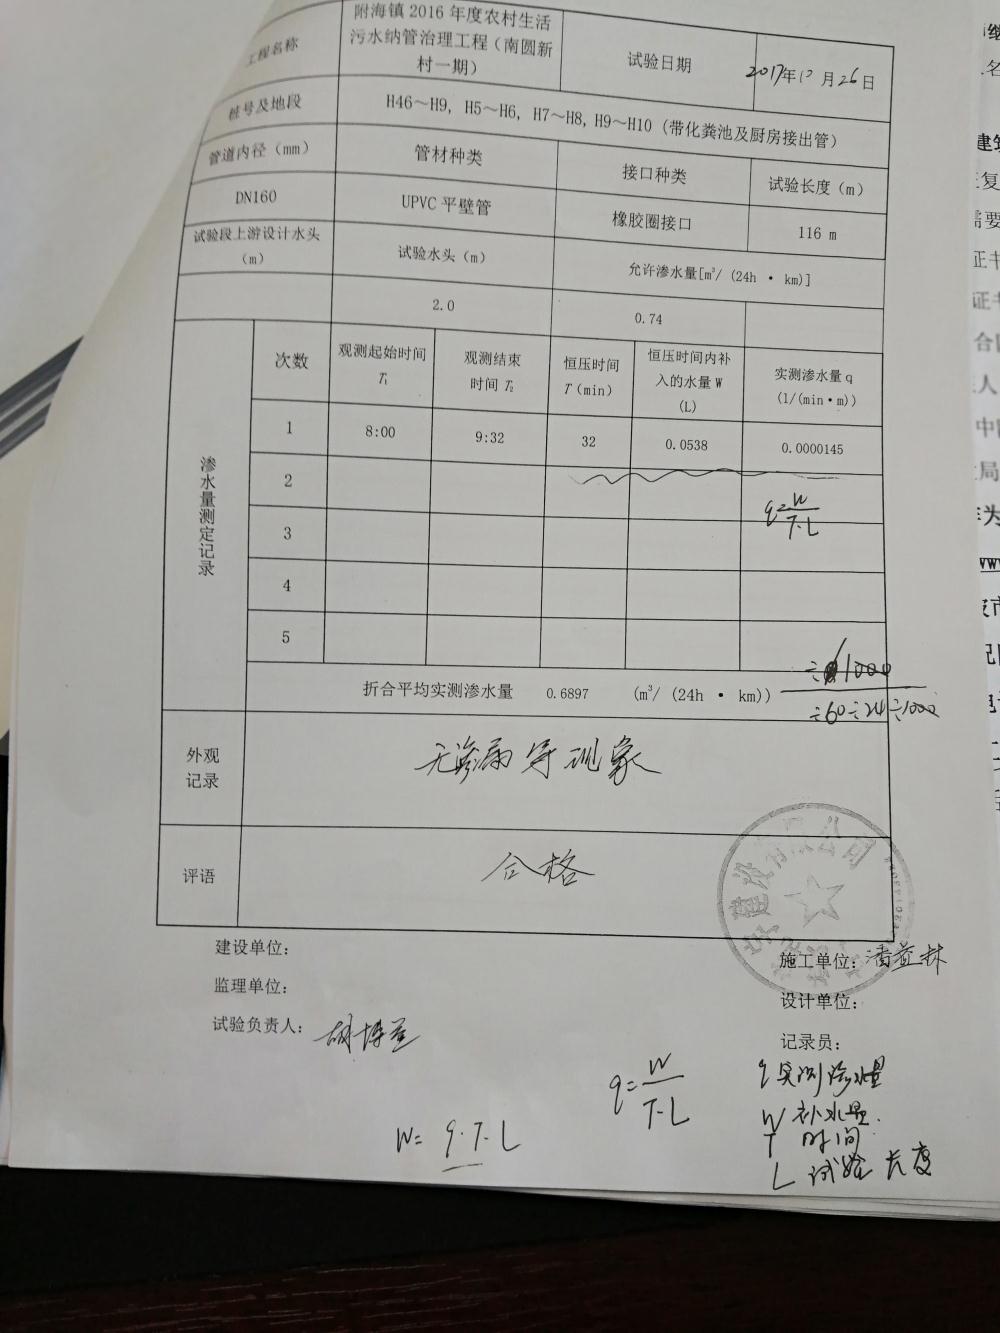 工程名称
附海镇 2016 年度农村生活
污水纳管治理工程（南圆新
村一期）
试验日期
2017年12月26日
桩号及地段
H46～H9, H5～H6, H7～H8, H9～H10（带化粪池及厨房接出管）
管道内径（mm）
管材种类
接口种类
试验长度（m）
DN160
UPVC 平壁管
橡胶圈接口
116 m
试验段上游设计水头
（m）
试验水头（m）
允许渗水量[m³/（24h • km)]
2.0
0.74
渗水量测定记录
次数
观测起始时间
T₁
观测结束
时间 T₂
恒压时间
T（min）
恒压时间内补
入的水量 W
（L）
实测渗水量 q
（l/(min•m)）
1
8:00
9:32
32
0.0538
0.0000145
2
3
q=W/T·L
4
5
折合平均实测渗水量 0.6897 （m³/（24h • km））
÷1000
÷60÷24÷1000
外观
记录
无渗漏等现象
评语
合格
建设单位：
施工单位：潘益林
监理单位：
设计单位：
试验负责人：胡博
记录员：
q=W/T·L
W= q·T·L
q 实测渗水量
W 补水量.
T 时间
L 试验长度
建设有限公司